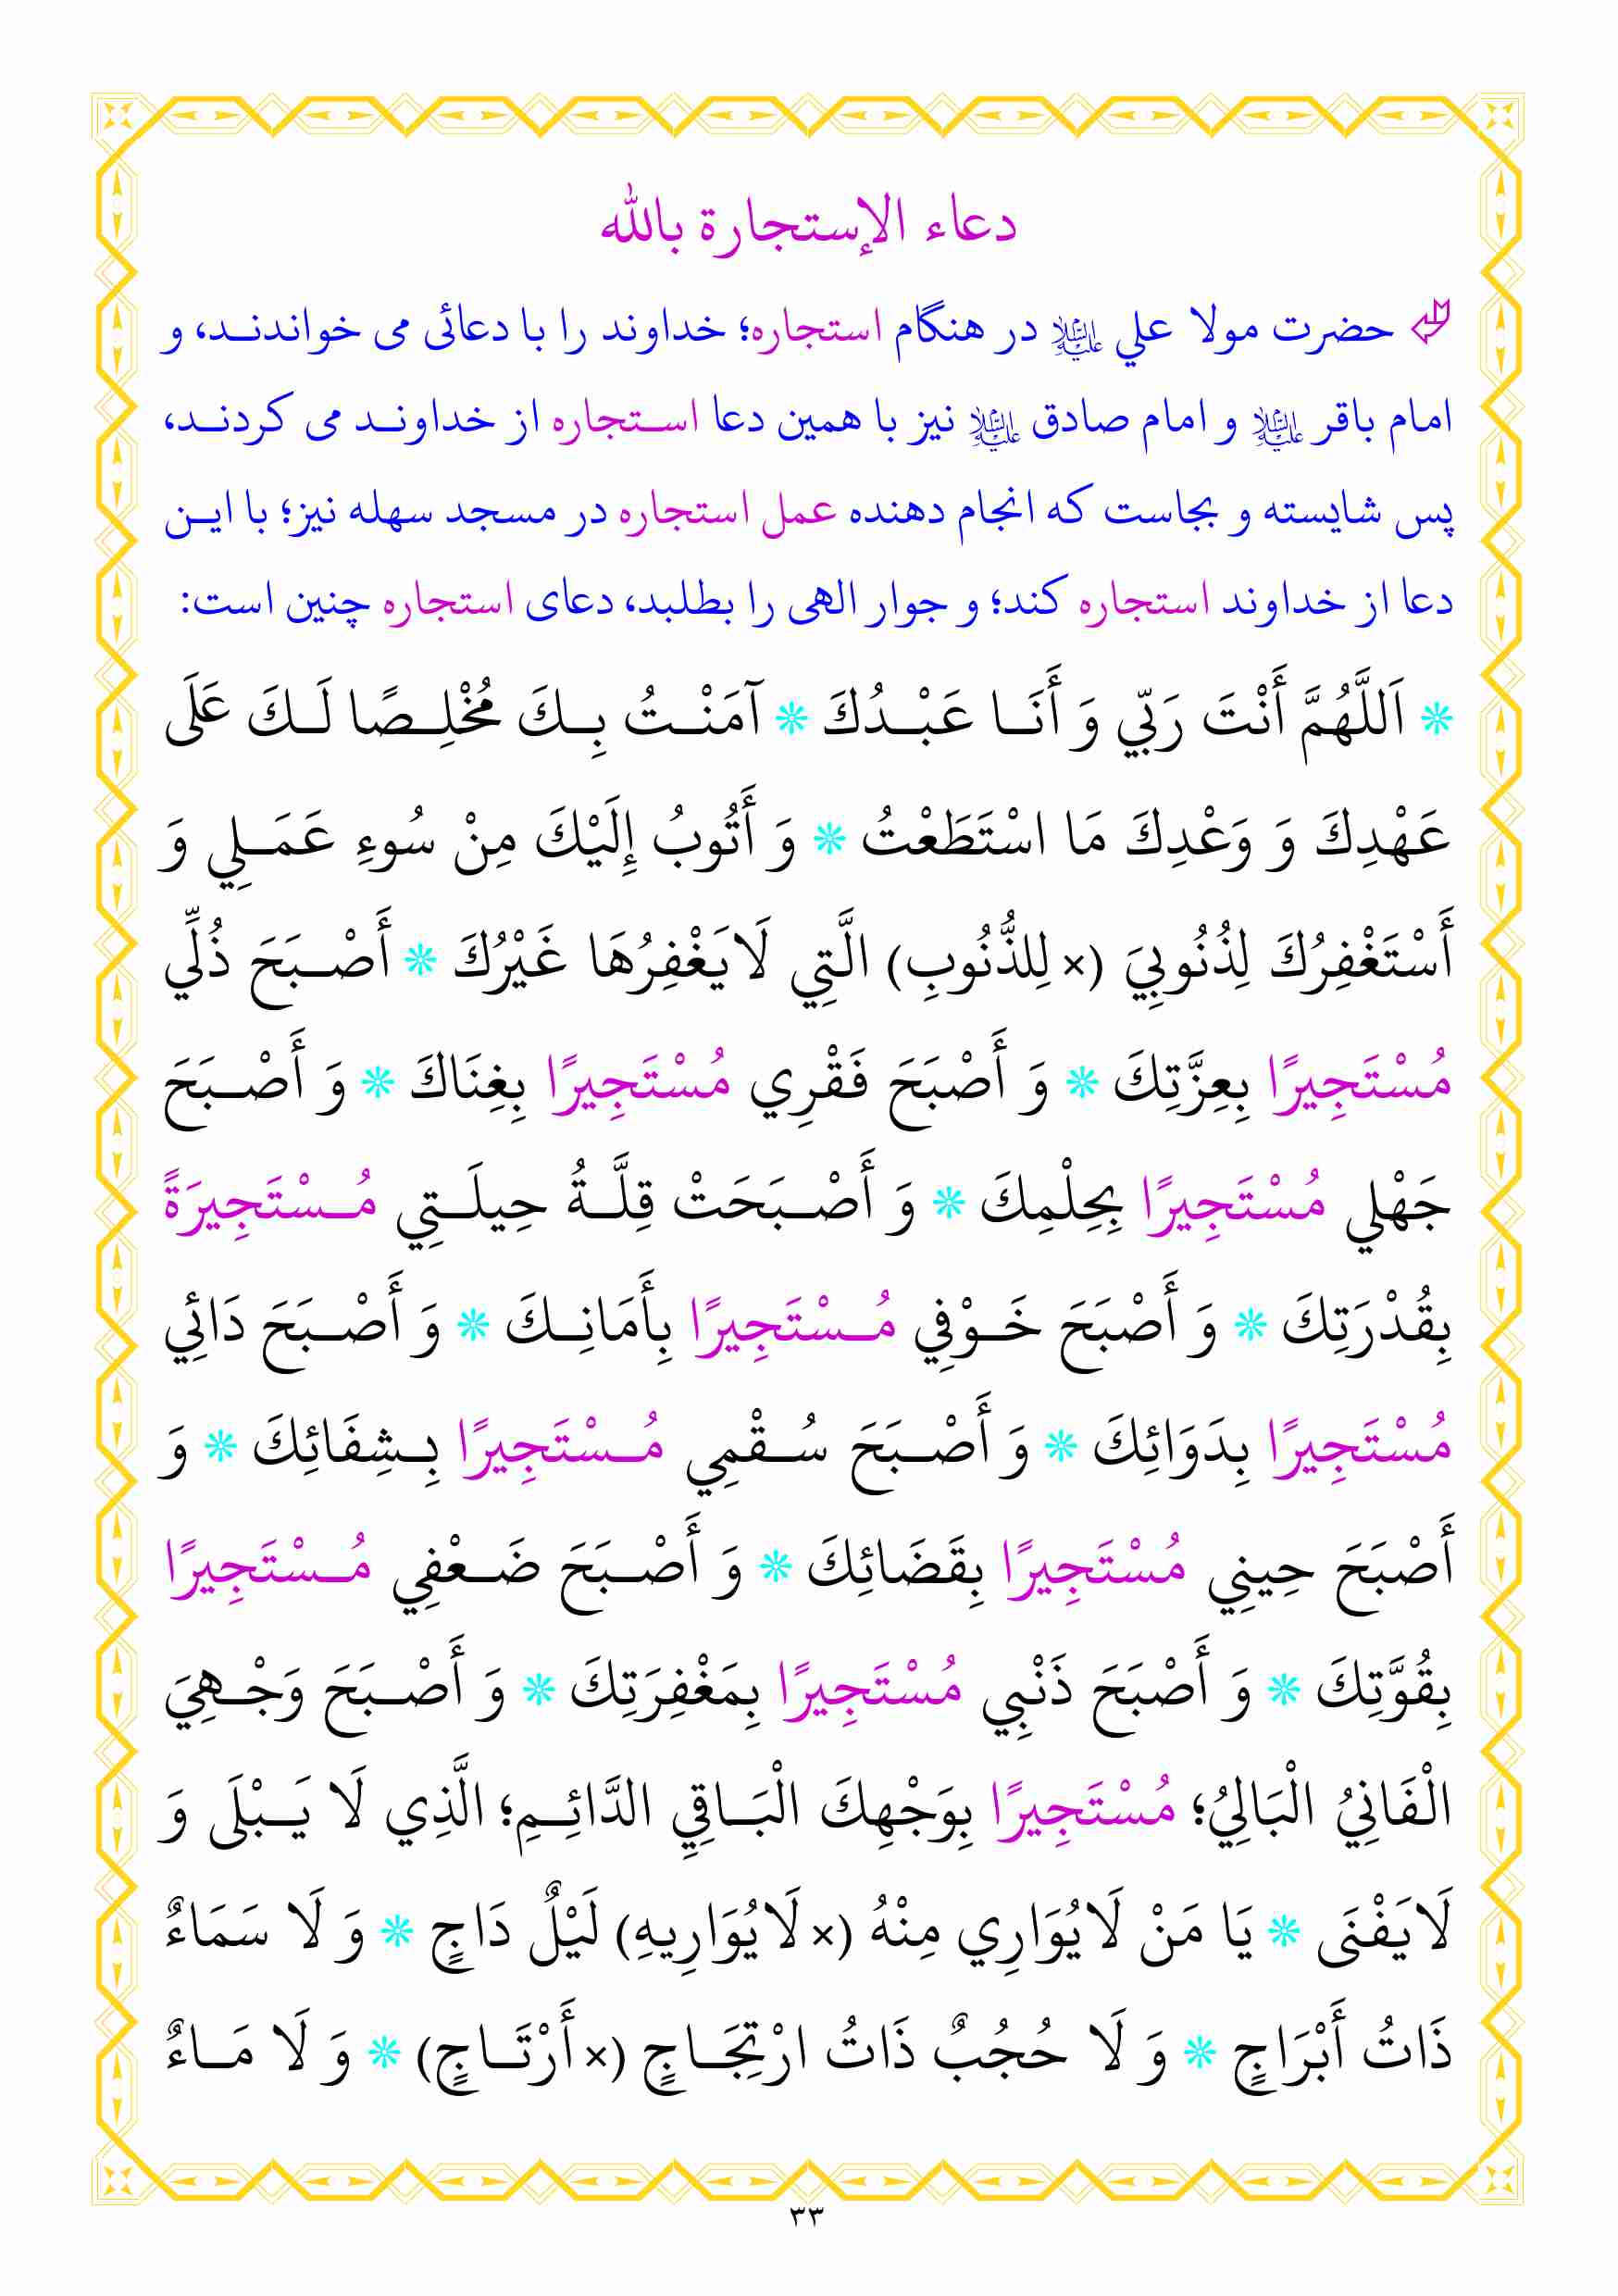 دعاء الإستجارة بالله
حضرت مولا علي علیه السلام در هنگام استجاره؛ خداوند را با دعائی می خواندنــد، و
امام باقر علیه السلام و امام صادق علیه السلام نیز با همین دعا اســتجاره از خداونــد می کردنــد،
پس شایسته و بجاست که انجام دهنده عمل استجاره در مسجد سهله نیز؛ با ایــن
دعا از خداوند استجاره کند؛ و جوار الهی را بطلبد، دعای استجاره چنین است:
* اَللَّهُمَّ أَنْتَ رَبّي وَ أَنَــا عَبْــدُكَ * آمَنْــتُ بِــكَ مُخْلِــصًا لَــكَ عَلَى
عَهْدِكَ وَ وَعْدِكَ مَا اسْتَطَعْتُ * وَ أَتُوبُ إِلَيْكَ مِنْ سُوءِ عَمَــلِي وَ
أَسْتَغْفِرُكَ لِذُنُوبِيَ (× لِلذُّنُوبِ) الَّتِي لَايَغْفِرُهَا غَيْرُكَ * أَصْــبَحَ ذُلِّي
مُسْتَجِيرًا بِعِزَّتِكَ * وَ أَصْبَحَ فَقْرِي مُسْتَجِيرًا بِغِنَاكَ * وَ أَصْــبَحَ
جَهْلي مُسْتَجِيرًا بِحِلْمِكَ * وَ أَصْــبَحَتْ قِلَّــةُ حِيلَــتِي مُــسْتَجِيرَةً
بِقُدْرَتِكَ * وَ أَصْبَحَ خَــوْفِي مُــسْتَجِيرًا بِأَمَانِــكَ * وَ أَصْــبَحَ دَائِي
مُسْتَجِيرًا بِدَوَائِكَ * وَ أَصْــبَحَ سُــقْمِي مُــسْتَجِيرًا بِــشِفَائِكَ * وَ
أَصْبَحَ حِينِي مُسْتَجِيرًا بِقَضَائِكَ * وَ أَصْــبَحَ ضَــعْفِي مُــسْتَجِيرًا
بِقُوَّتِكَ * وَ أَصْبَحَ ذَنْبِي مُسْتَجِيرًا بِمَغْفِرَتِكَ * وَ أَصْــبَحَ وَجْــهِيَ
الْفَانِيُ الْبَالِيُ؛ مُسْتَجِيرًا بِوَجْهِكَ الْبَــاقِيِ الدَّائِــمِ؛ الَّذِي لَا يَــبْلَى وَ
لَايَفْنَى * يَا مَنْ لَايُوَارِي مِنْهُ (× لَايُوَارِيهِ) لَيْلٌ دَاجٍ * وَ لَا سَمَاءٌ
ذَاتُ أَبْرَاجٍ * وَ لَا حُجُبٌ ذَاتُ ارْتِجَــاجٍ (× أَرْتَــاجٍ) * وَ لَا مَــاءٌ
٣٣